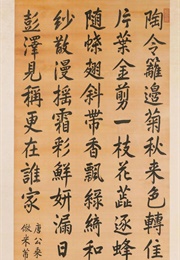 陶令籬邊菊秋来色轉佳
片葉金剪一枝花蕋逐蜂
随蝶翅斜帶香飄綠綺和
紗散漫摇霜彩鮮妍漏日
彭澤見稱更在誰家
唐公乘
倣米芾